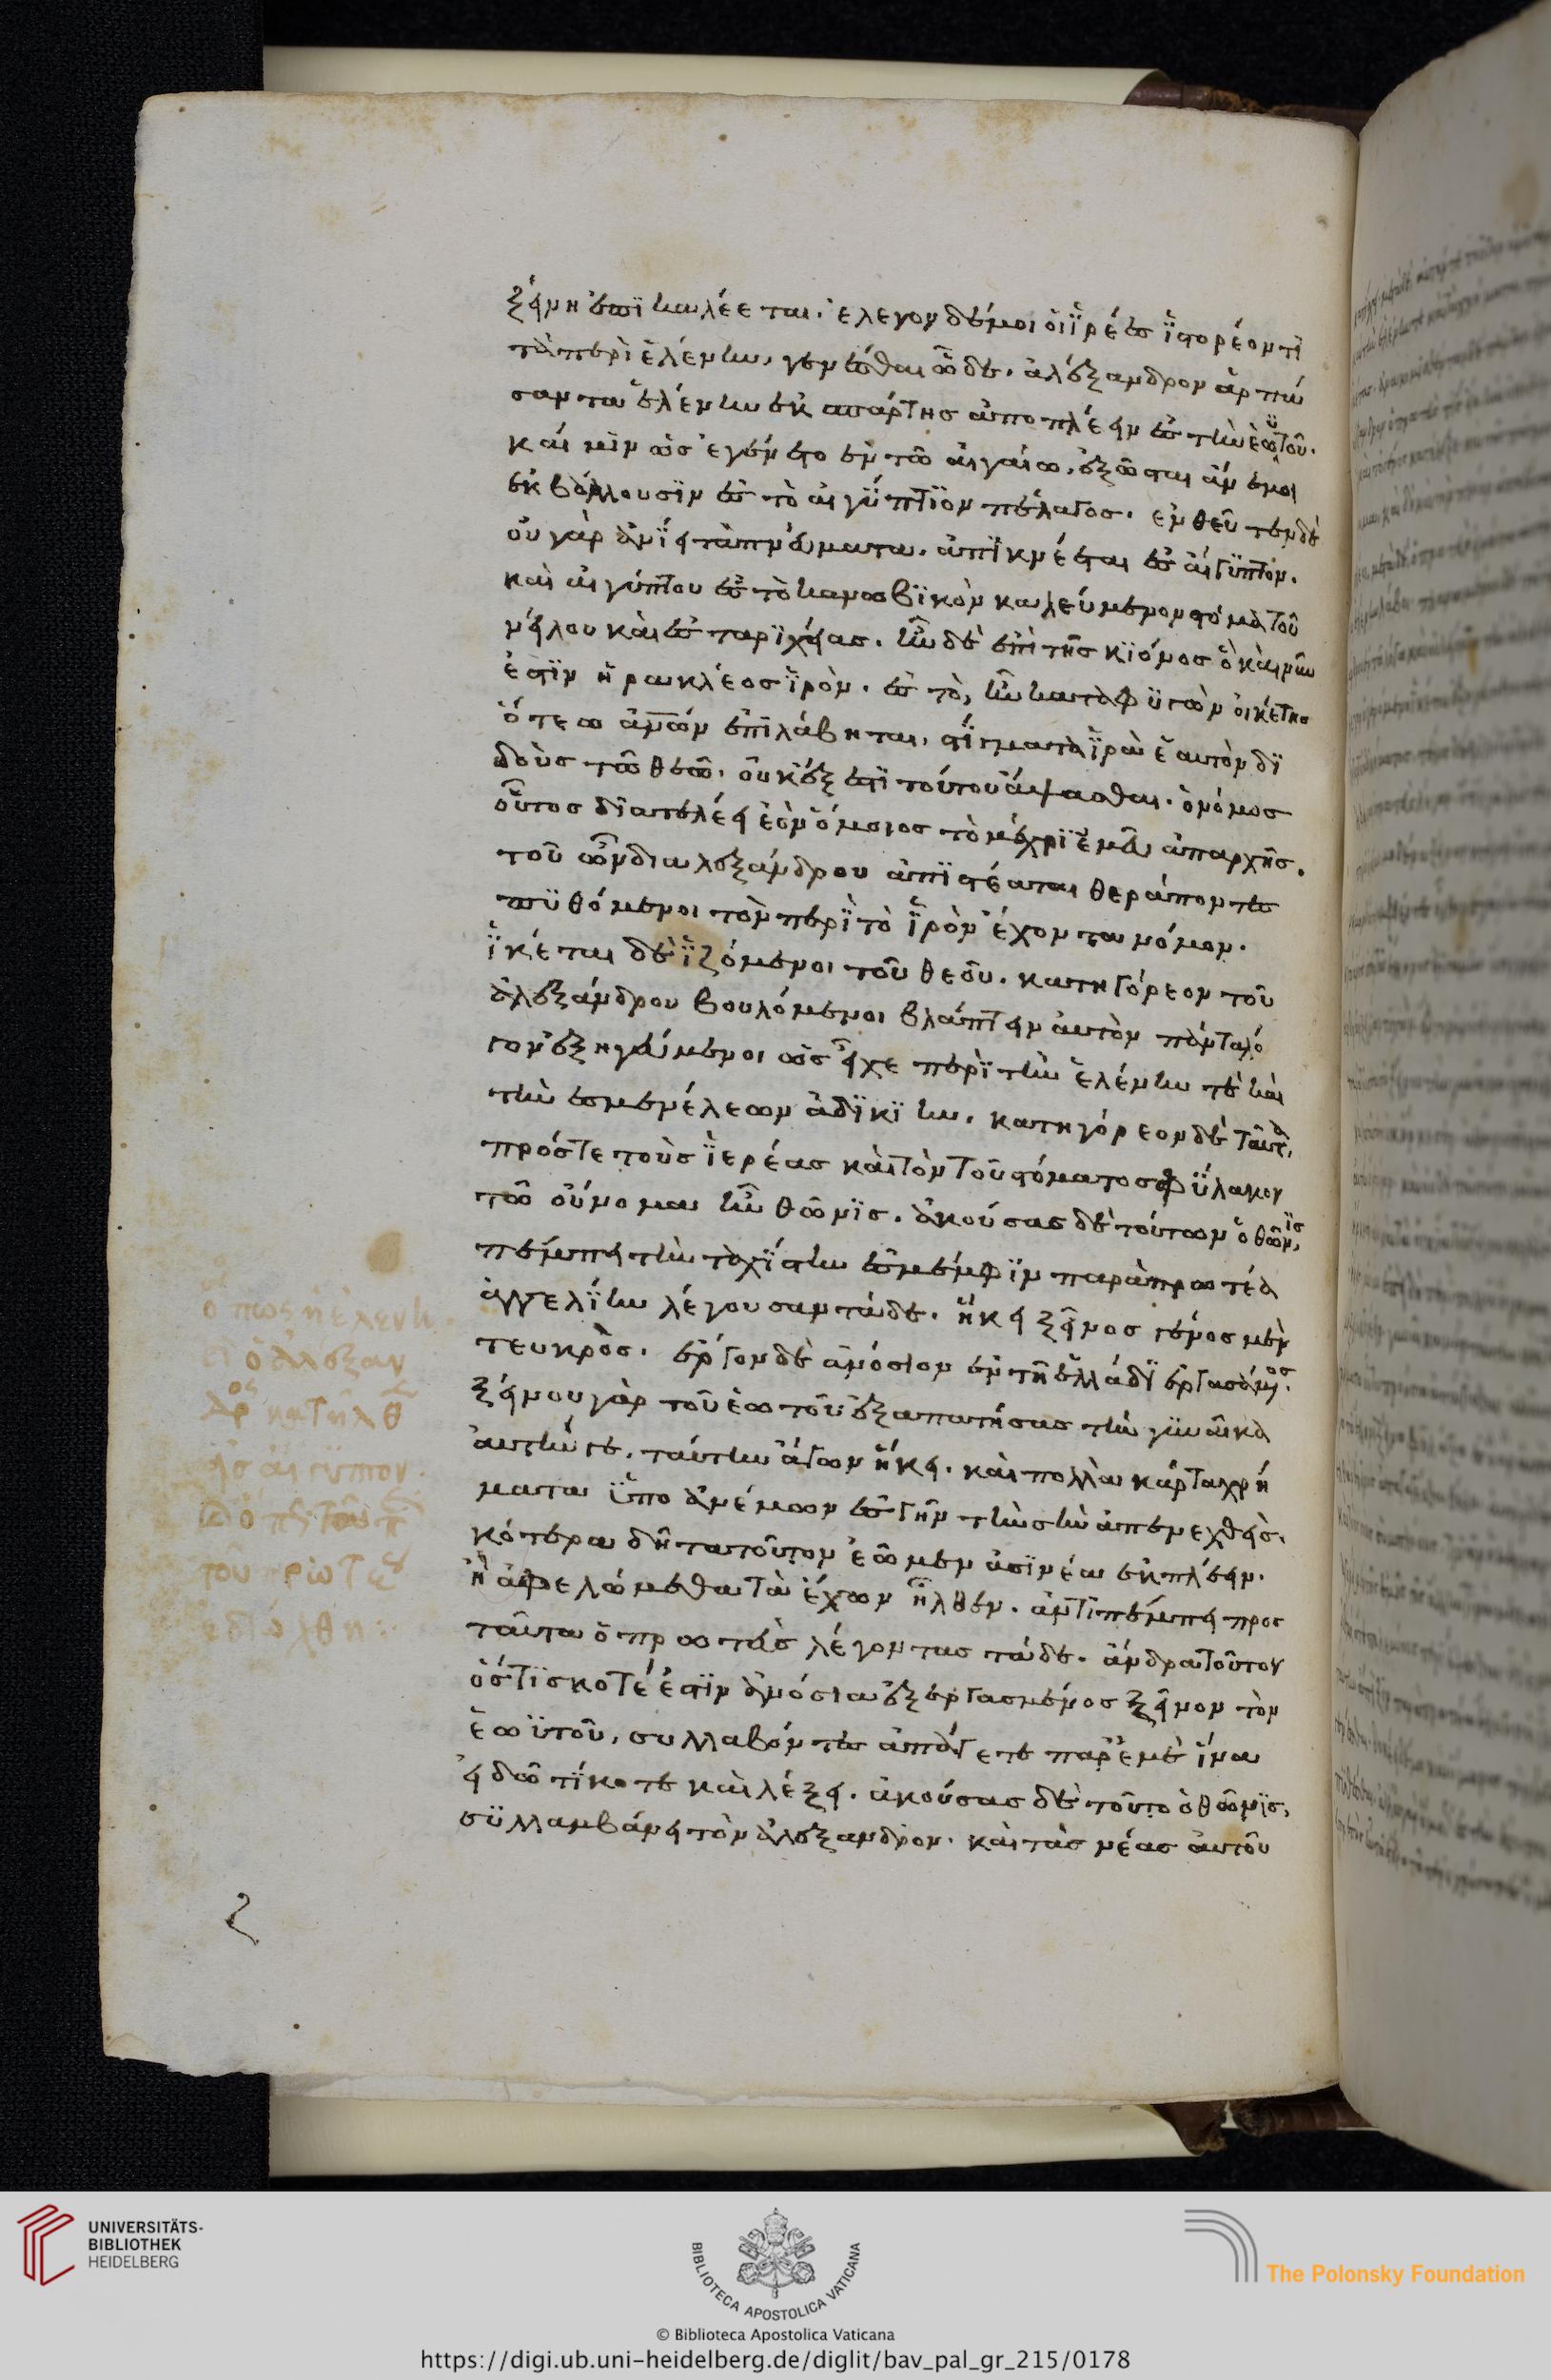 ξείνη ἐπικαλέεται. ἔλεγον δέ μοι οἱ ἱρέες ἱστορέοντι
τὰ περὶ ἑλένην, γενέσθαι ὧδε. ἀλέξανδρον ἁρπά
σαντα ἑλένην ἐκ σπάρτης ἀποπλέειν ἐς τὴν ἑωϋτοῦ.
καί μιν ὡς ἐγένετο ἐν τῶ αἰγαίω, ἐξῶσται ἄνεμοι
ἐκβάλλουσιν ἐς τὸ αἰγύπτιον πέλαγος. ἐνθεῦτεν δὲ
οὐ γὰρ ἀνίει τὰ πνεύματα. ἀπικνέεται ἐς αἴγυπτον.
καὶ αἰγύπτου ἐς τὸ κανωβικὸν καλεύμενον στόμα τοῦ
νείλου καὶ ἐς ταριχείας. ἦν δὲ ἐπὶ τῆς κιόνος ὃ καὶ νῦν
ἐστιν ἡρακλέος ἱρόν. ἐς τὸ, ἢν καταφυγὼν οἰκέτης
ὅτεω ἀνῶν ἐπιλάβηται, στίγματα ἱρὰ ἑαυτὸν δι
δοὺς τῶ θεῶ. οὐκ ἔξεστι τούτου ἅψασθαι. ὁ νόμος
οὗτος διατελέει ἐὼν ὅμοιος τὸ μέχρι ἐμεῦ ἀπαρχῆς.
τοῦ ὧν δὴ ἀλεξάνδρου ἀπιστέαται θεράποντες
πυθόμενοι τὸν περὶ τὸ ἱρὸν ἔχοντα νόμον.
ἱκέται δὲ ἱζόμενοι τοῦ θεοῦ. κατηγόρεον τοῦ
ἀλεξάνδρου βουλόμενοι βλάπτειν αὐτὸν πάντα λό
γον ἐξηγεύμενοι ὡς εἶχε περὶ τὴν ἑλένην τὲ καὶ
τὴν ἐς μενέλεων ἀδικίην. κατηγόρεον δὲ ταῦτα,
πρός τε τοὺς ἱερέας καὶ τὸν τοῦ στόματος φύλακον
τῶ οὔνομα ἦν θῶνις. ἀκούσας δὲ τούτων ὁ θῶνις,
πέμπει τὴν ταχίστην ἐς μέμφιν παρὰ πρωτέα
ἀγγελίην λέγουσαν τάδε. ἥκει ξεῖνος γένος μὲν
τευκρός. ἔργον δὲ ἀνόσιον ἐν τῆ ἑλλάδι ἐργασάμενος.
ξείνου γὰρ τοῦ ἑωτοῦ ἐξαπατήσας τὴν γυναῖκα
αὐτήν τε. ταύτην ἄγων ἥκει. καὶ πολλὰ κάρτα χρή
ματα ὑπὸ ἀνέμων ἐς γῆν τὴν σὴν ἀπενεχθείς.
κότερα δῆτα τοῦτον ἐῶμεν ἀσινέα ἐκπλέειν.
ἢ ἀφελώμεθα τὰ ἔχων ἦλθεν. ἀντιπέμπει πρὸς
ταῦτα ὁ πρωτεὺς λέγοντας τάδε. ἄνδρα τοῦτον
ὅστις κοτέ ἐστιν ἀνόσια ἐξεργασμένος ξεῖνον τὸν
ἑωϋτοῦ, συλλαβόντες ἀπάγετε παρ' ἐμὲ ἵνα
εἰδῶ τί κοτε καὶ λέξει. ἀκούσας δὲ τοῦτο ὁ θῶνις,
συλλαμβάνει τὸν ἀλέξανδρον. καὶ τὰς νέας αὐτοῦ
ὅπως ἡ ἑλένη
ὁ ἀλέξαν
δρος κατῆλθ
εἰς αἴγυπτον.
του πρωτέως
ἐδιώχθη:
UNIVERSITÄTS-
BIBLIOTHEK
HEIDELBERG
BIBLIOTECA APOSTOLICA VATICANA
The Polonsky Foundation
© Biblioteca Apostolica Vaticana
https://digi.ub.uni-heidelberg.de/diglit/bav_pal_gr_215/0178